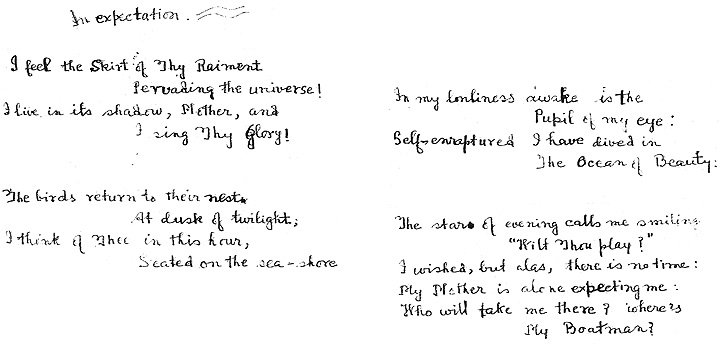 In expectation.
I feel the Skirt of Thy Raiment
Pervading the universe!
I live in its shadow, Mother, and
I sing Thy Glory!
The birds return to their nests
At dusk of twilight;
I think of Thee in this hour,
Seated on the sea-shore
In my lonliness awake is the
Pupil of my eye:
Self-enraptured I have dived in
The Ocean of Beauty:
The stars of evening calls me smiling
"Wilt Thou play?"
I wished, but alas, there is no time:
My Mother is alone expecting me:
Who will take me there? where is
My Boatman?